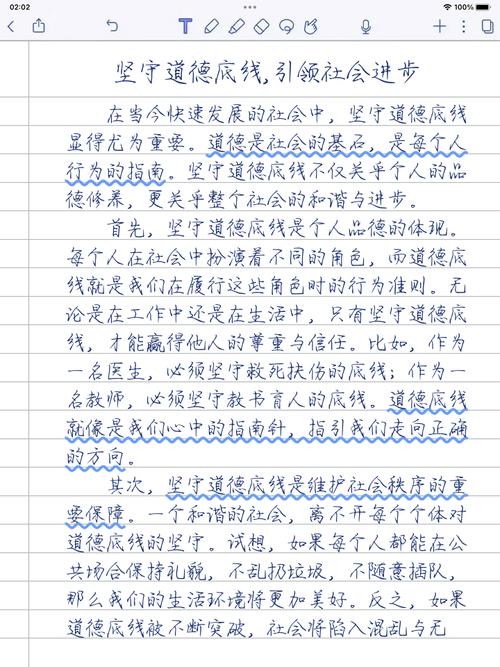 02:02
100%
坚守道德底线,引领社会进步
在当今快速发展的社会中，坚守道德底线
显得尤为重要。道德是社会的基石，是每个人
行为的指南。坚守道德底线不仅关乎个人的品
德修养，更关乎整个社会的和谐与进步。
首先，坚守道德底线是个人品德的体现。
每个人在社会中扮演着不同的角色，而道德底
线就是我们在履行这些角色时的行为准则。无
论是在工作中还是在生活中，只有坚守道德底
线，才能赢得他人的尊重与信任。比如，作为
一名医生，必须坚守救死扶伤的底线；作为一
名教师，必须坚守教书育人的底线。道德底线
就像是我们心中的指南针，指引我们走向正确
的方向。
其次，坚守道德底线是维护社会秩序的重
要保障。一个和谐的社会，离不开每个个体对
道德底线的坚守。试想，如果每个人都能在公
共场合保持礼貌，不乱扔垃圾，不随意插队，
那么我们的生活环境将更加美好。反之，如果
道德底线被不断突破，社会将陷入混乱与无